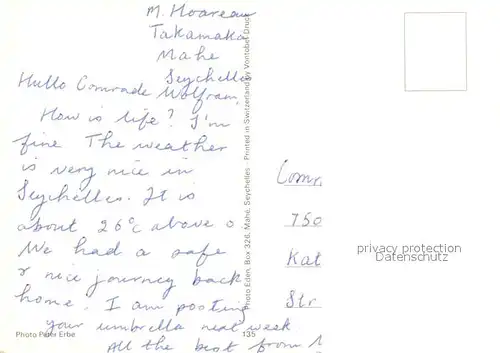 M. Hoareau
Takamaka
Mahe
Seychelles
Hullo Comrade Wolfram,
How is life? I'm
fine The weather
is very nice in
Seychelles. It is
about 26°C above o
We had a safe
r nice journey back
home. I am posting
your umbrella next week
All the best from
Comr.
750
Kat
Str
privacy protection
Datenschutz
Photo Eden, Box 326, Mahé, Seychelles - Printed in Switzerland by Vontobel-Druck
Photo Peter Erbe
135